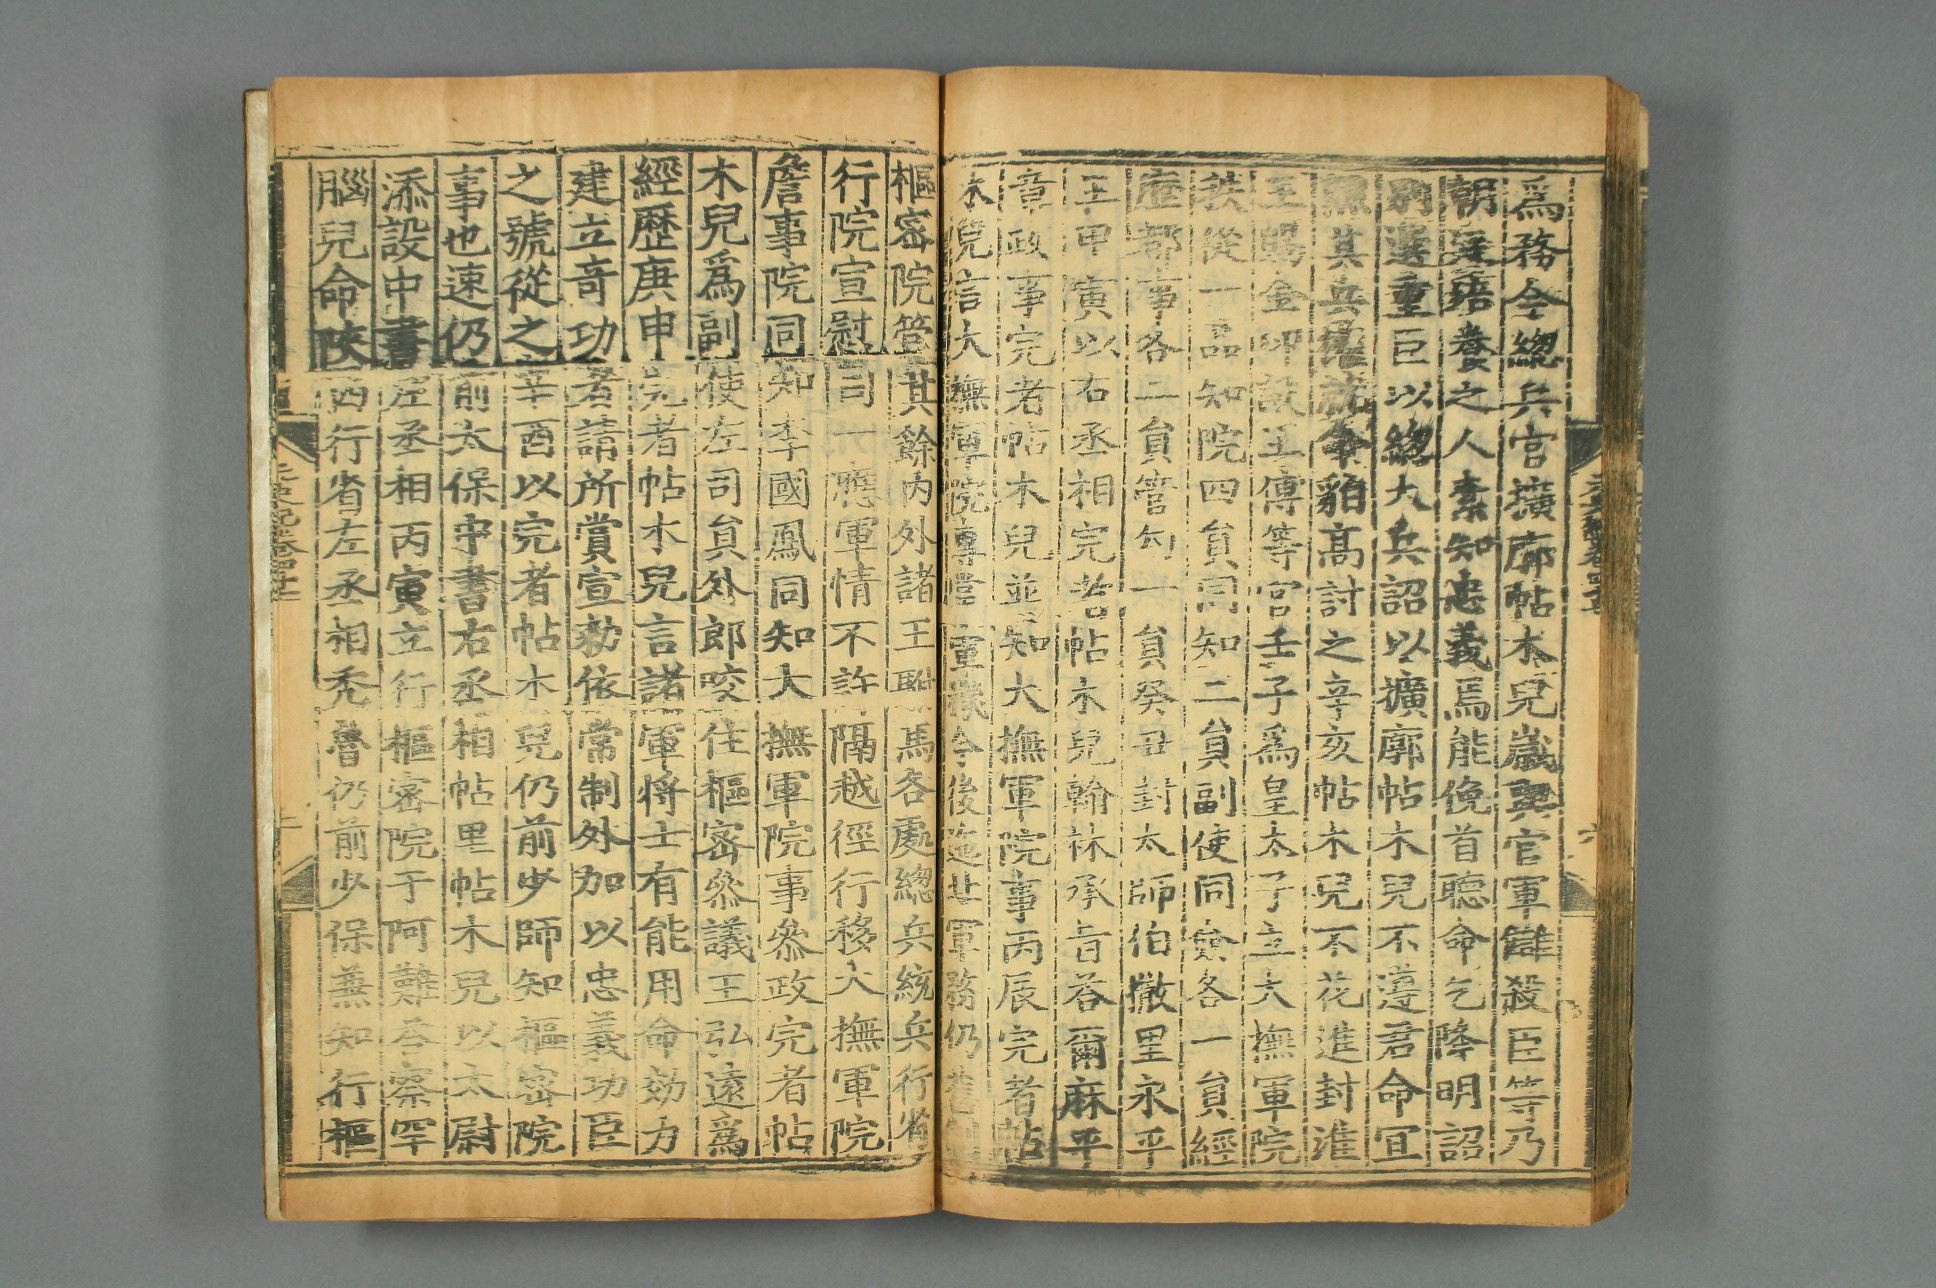 爲務今總兵官擴廓帖木兒歲與官軍讎殺臣等乃
朝廷培養之人素知忠義焉能俛首聽命乞降明詔
別選重臣以總大兵詔以擴廓帖木兒不遵君命宜
黜其兵權就命貊高討之辛亥帖木兒不花進封淮
王賜金印設王傅等官壬子爲皇太子立大撫軍院
秩從一品知院四員同知二員副使同僉各一員經
歷都事各二員管勾一員癸丑封太師伯撒里永平
王甲寅以右丞相完者帖木兒翰林承旨荅爾麻平
章政事完者帖木兒並知大撫軍院事丙辰完者帖
木兒言大撫軍院專掌軍機今後迤北軍務仍舊
樞密院管其餘内外諸王駙馬各處總兵統兵行省
行院宣慰司一應軍情不許隔越徑行移大撫軍院
詹事院同知李國鳳同知大撫軍院事參政完者帖
木兒爲副使左司員外郎咬住樞密參議王弘遠爲
經歷庚申完者帖木兒言諸軍將士有能用命效力
建立奇功者請所賞宣勅依常制外加以忠義功臣
之號從之辛酉以完者帖木兒仍前少師知樞密院
事也速仍前太保中書右丞相帖里帖木兒以太尉
添設中書左丞相丙寅立行樞密院于阿難荅察罕
腦兒命陝西行省左丞相禿魯仍前少保兼知行樞
元史紀卷四十七